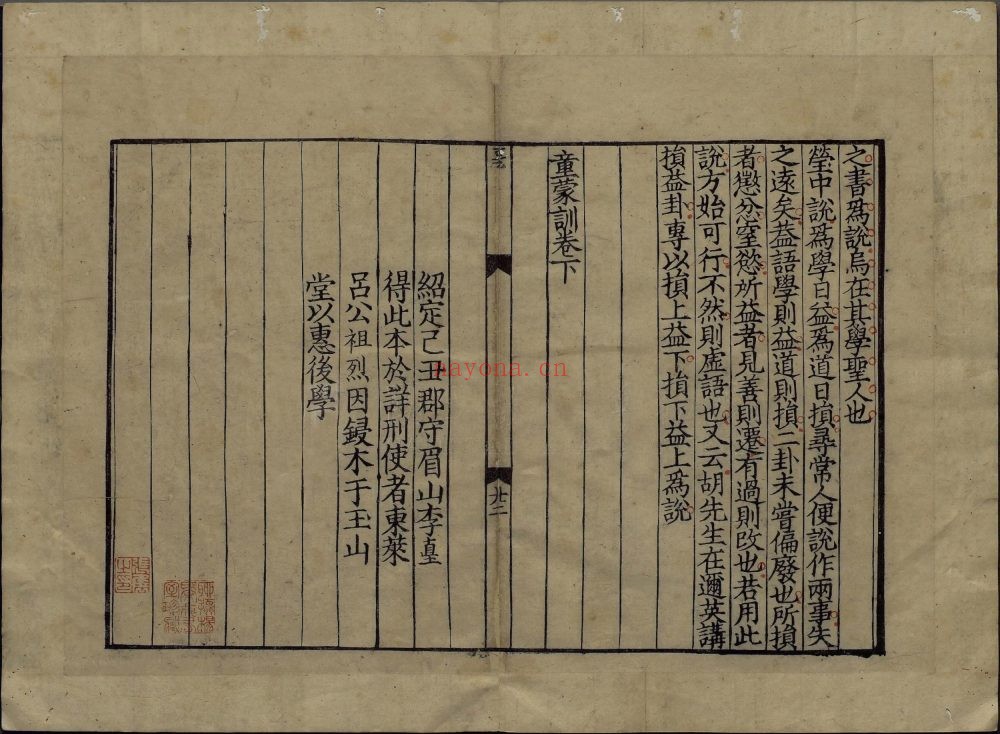 之書爲說烏在其學聖人也
瑩中說爲學日益爲道日損尋常人便說作兩事失
之遠矣葢語學則益道則損二卦未嘗偏廢也所損
者懲忿窒慾所益者見善則遷有過則改也若用此
說方始可行不然則虛語也又云胡先生在邇英講
損益卦專以損上益下損下益上爲說
童蒙訓卷下
廿二
紹定己丑郡守眉山李𡌴
得此本於詳刑使者東萊
呂公祖烈因鋟木于玉山
堂以惠後學
nayona.cn